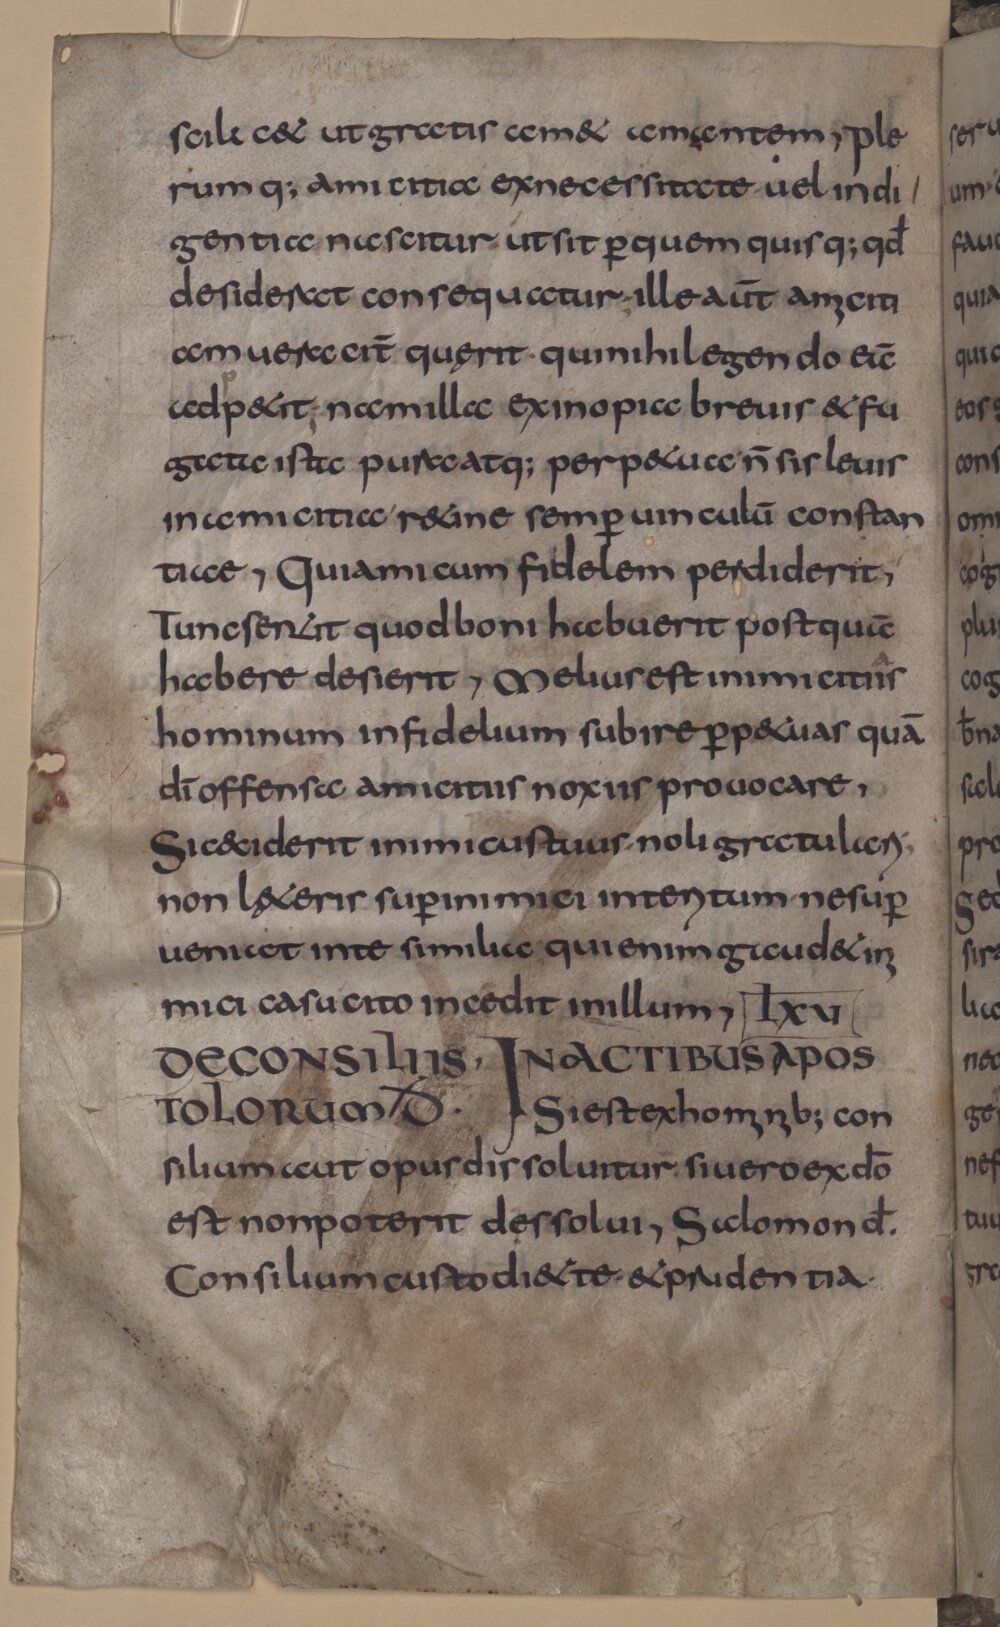 scilic& ut gratis am& amantem, ple
rumq; amicitia ex necessitate uel indi
gentia nascitur ut sit p̱ quem quisq; qd̄
desiderat consequatur ille aūt amiciti
am ueracit̄ querit qui nihil egendo eā
adp&it; nam illa ex inopia breuis & fu
gata ista pura atq; perp&ua n̄ sis leuis
in amicitia r&ine semp̱ uinculū constan
tiae, Qui amicum fidelem perdiderit,
Tunc sentit quod boni habuerit postquā
habere desierit, Melius est inimicitiis
hominum infidelium subire p̱p&uas quā
dī offensa amicitiis noxiis prouocare,
Si ceciderit inimicus tuus noli gratulari
non l&eris sup̱ inimici interitum ne sup̱
ueniat in te similia qui enim gaud& ini
mici casu cito incedit in illum, LXV
DE CONSILIIS, IN ACTIBUS APOS
TOLORUM D̄. Si est ex hominib; con
silium aut opus dissoluitur si uero ex dō
est non poterit dessolui, Salomon d̄.
Consilium custodi& te & prudentia
ser
um
fau
quia
qui
eos
cons
om
cog
plu
cog
b̄na
pro
Sed
sir
lia
nec
ge
nef
tui
gra